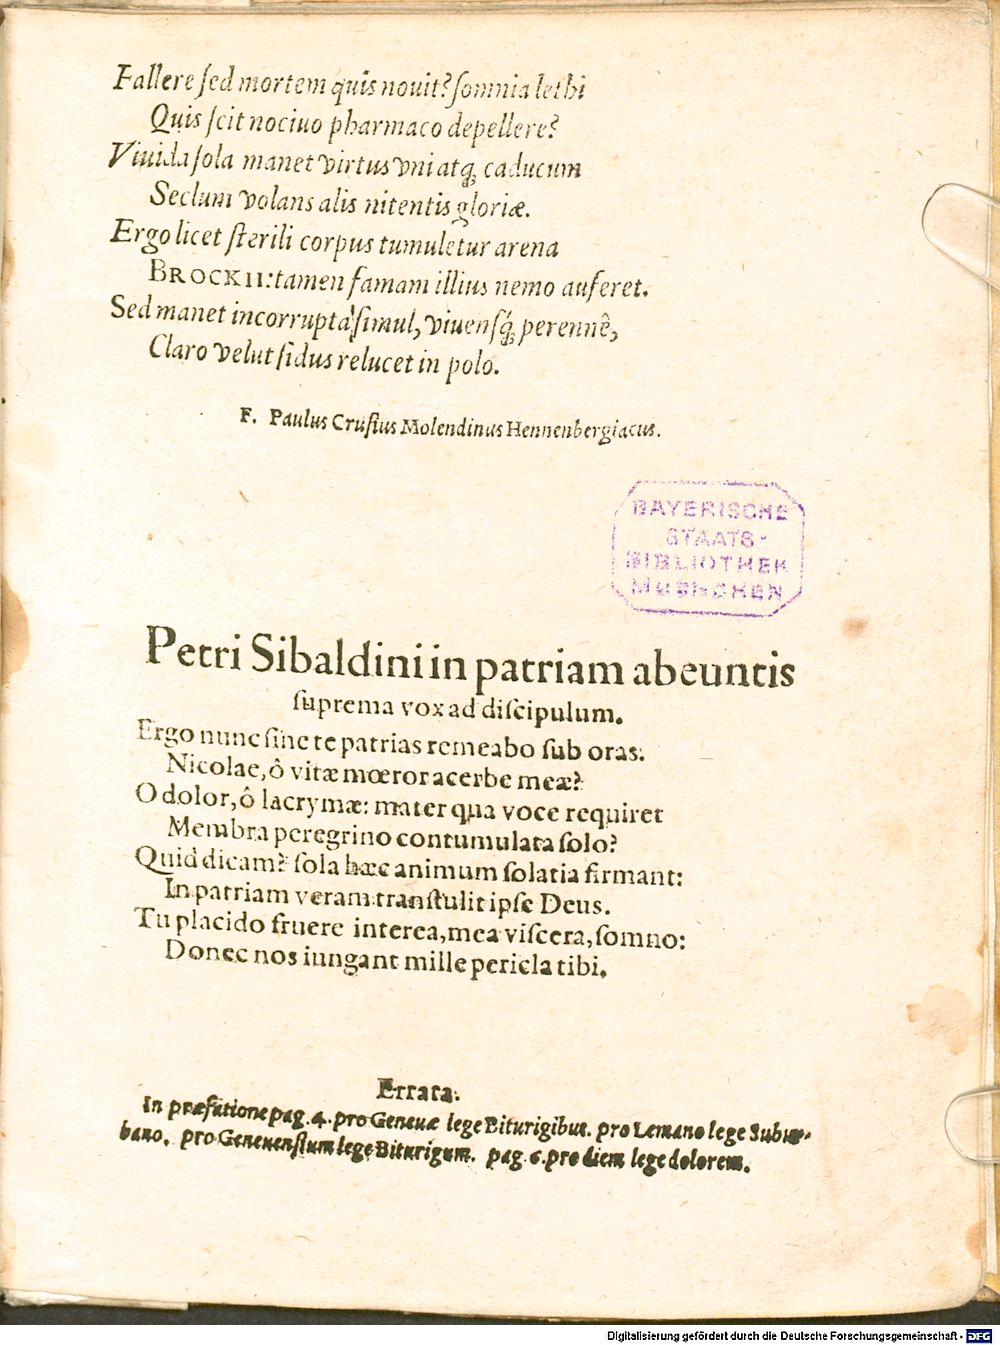 Fallere ſed mortem quis nouit? ſomnia lethi
Quis ſcit nociuo pharmaco depellere?
Viuida ſola manet virtus vni atq́; caducum
Seclum volans alis nitentis gloriæ.
Ergo licet ſterili corpus tumuletur arena
BROCKII: tamen famam illius nemo auferet.
Sed manet incorrupta ſimul, viuenſq́; perennê,
Claro velut ſidus relucet in polo.
F. Paulus Cruſius Molendinus Hennenbergiacus.
BAYERISCHE
STAATS-
BIBLIOTHEK
MUENCHEN
Petri Sibaldini in patriam abeuntis
ſuprema vox ad diſcipulum.
Ergo nunc ſine te patrias remeabo ſub oras:
Nicolae, ô vitæ mœror acerbe meæ?
O dolor, ô lacrymæ: mater qua voce requiret
Membra peregrino contumulata ſolo?
Quid dicam? ſola hæc animum ſolatia firmant:
In patriam veram tranſtulit ipſe Deus.
Tu placido fruere interea, mea viſcera, ſomno:
Donec nos iungant mille pericla tibi.
Errata.
In præfatione pag. 4. pro Geneuæ lege Biturigibus. pro Lemano lege Subur-
bano. pro Geneuenſium lege Biturigum. pag. 6. pro diem lege dolorem.
Digitalisierung gefördert durch die Deutsche Forschungsgemeinschaft - DFG